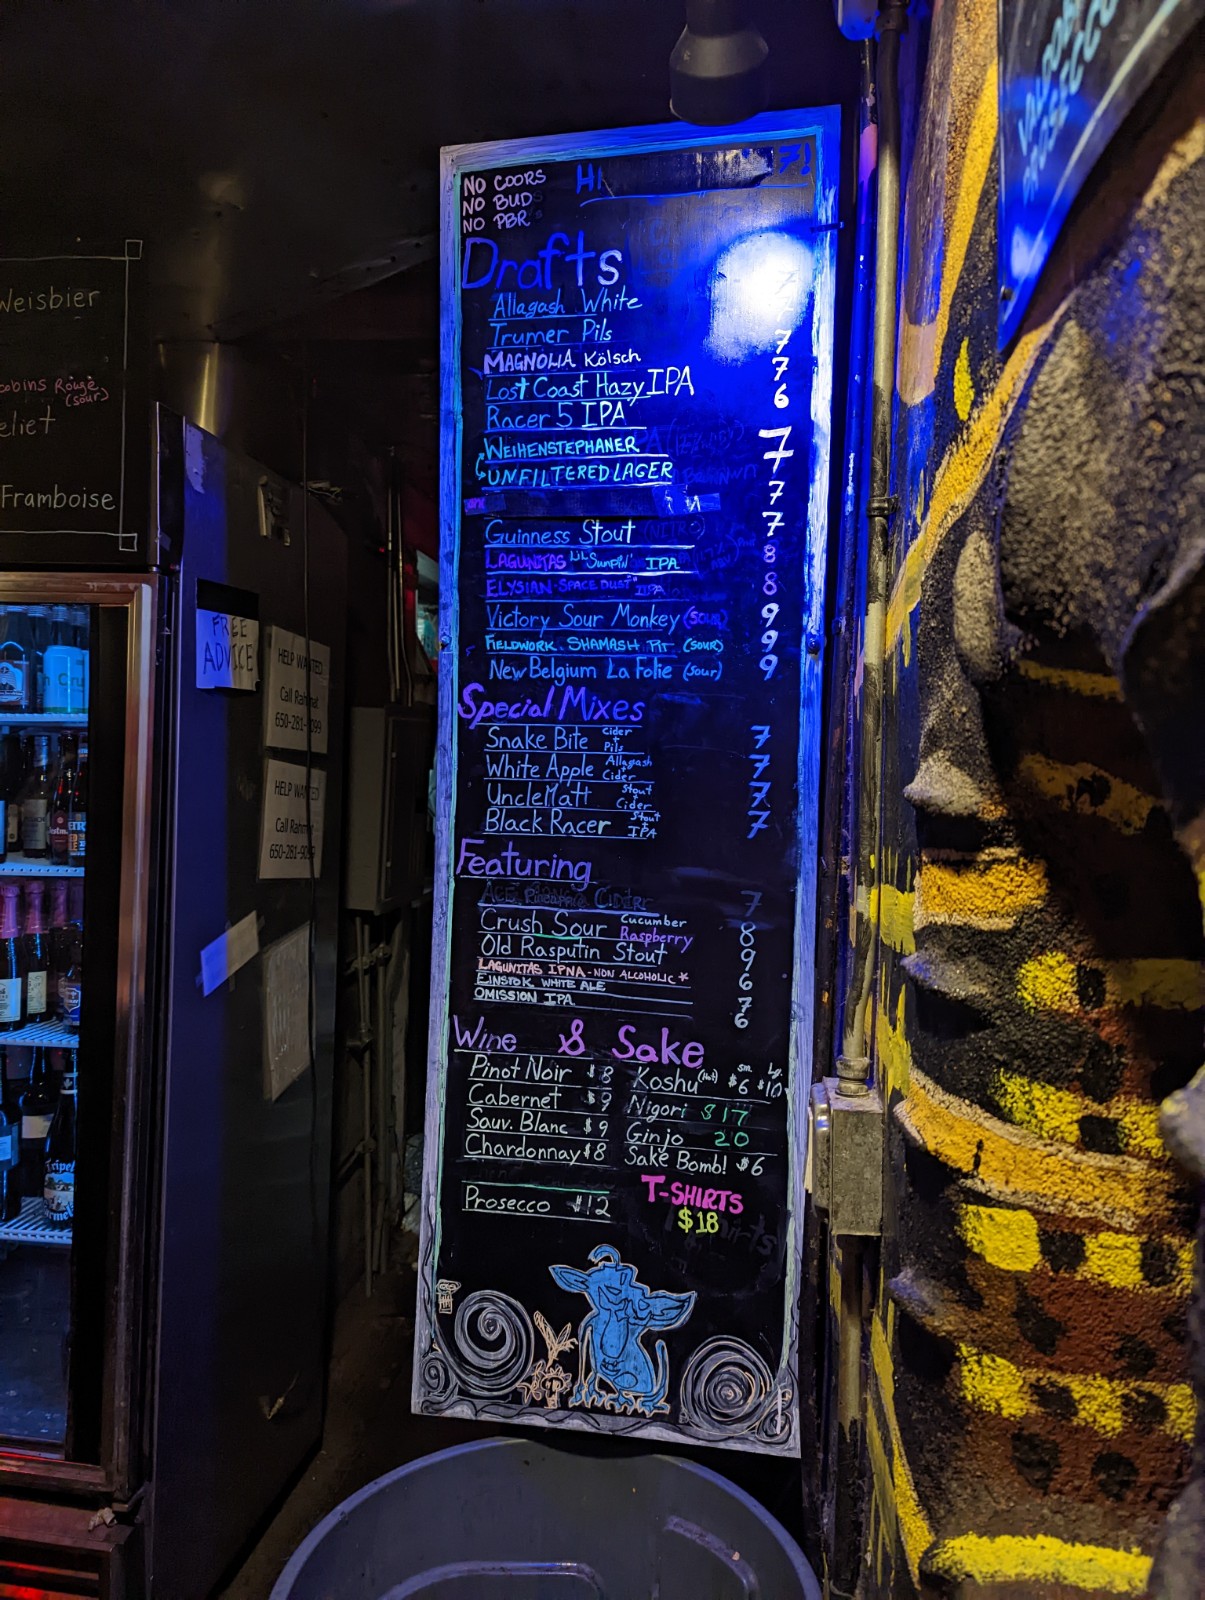 NO COORS
NO BUD
NO PBR
HI
7!
Drafts
Allagash White 7
Trumer Pils 7
MAGNOLIA Kölsch 7
Lost Coast Hazy IPA 7
Racer 5 IPA 6
WEIHENSTEPHANER 7
UNFILTERED LAGER 7
7
Guinness Stout 7
LAGUNITAS Lil Sumpin' IPA 8
ELYSIAN-SPACE DUST IPA 8
Victory Sour Monkey (SOUR) 9
FIELDWORK SHAMASH PIT (SOUR) 9
New Belgium La Folie (Sour) 9
Special Mixes
Snake Bite Cider + Pils 7
White Apple Allagash + Cider 7
Uncle Matt Stout + Cider 7
Black Racer Stout + IPA 7
Featuring
ACE Pineapple CIDER 7
Crush Sour Cucumber Raspberry 8
Old Rasputin Stout 9
LAGUNITAS IPNA - NON ALCOHOLIC * 6
EINSTOK WHITE ALE 7
OMISSION IPA 6
Wine & Sake
Pinot Noir $8
Cabernet $9
Sauv. Blanc $9
Chardonnay $8
Prosecco $12
sm. Lg.
Koshu (Hot) $6 $10
Nigori $17
Ginjo 20
Sake Bomb! $6
T-SHIRTS
$18
Weisbier
cobins Rouge
(sour)
eliet
Framboise
FREE
ADVICE
HELP WANTED
Call Rahmat
650-281-9099
HELP WANTED
Call Rahmat
650-281-9099
Tripel
PROSECCO